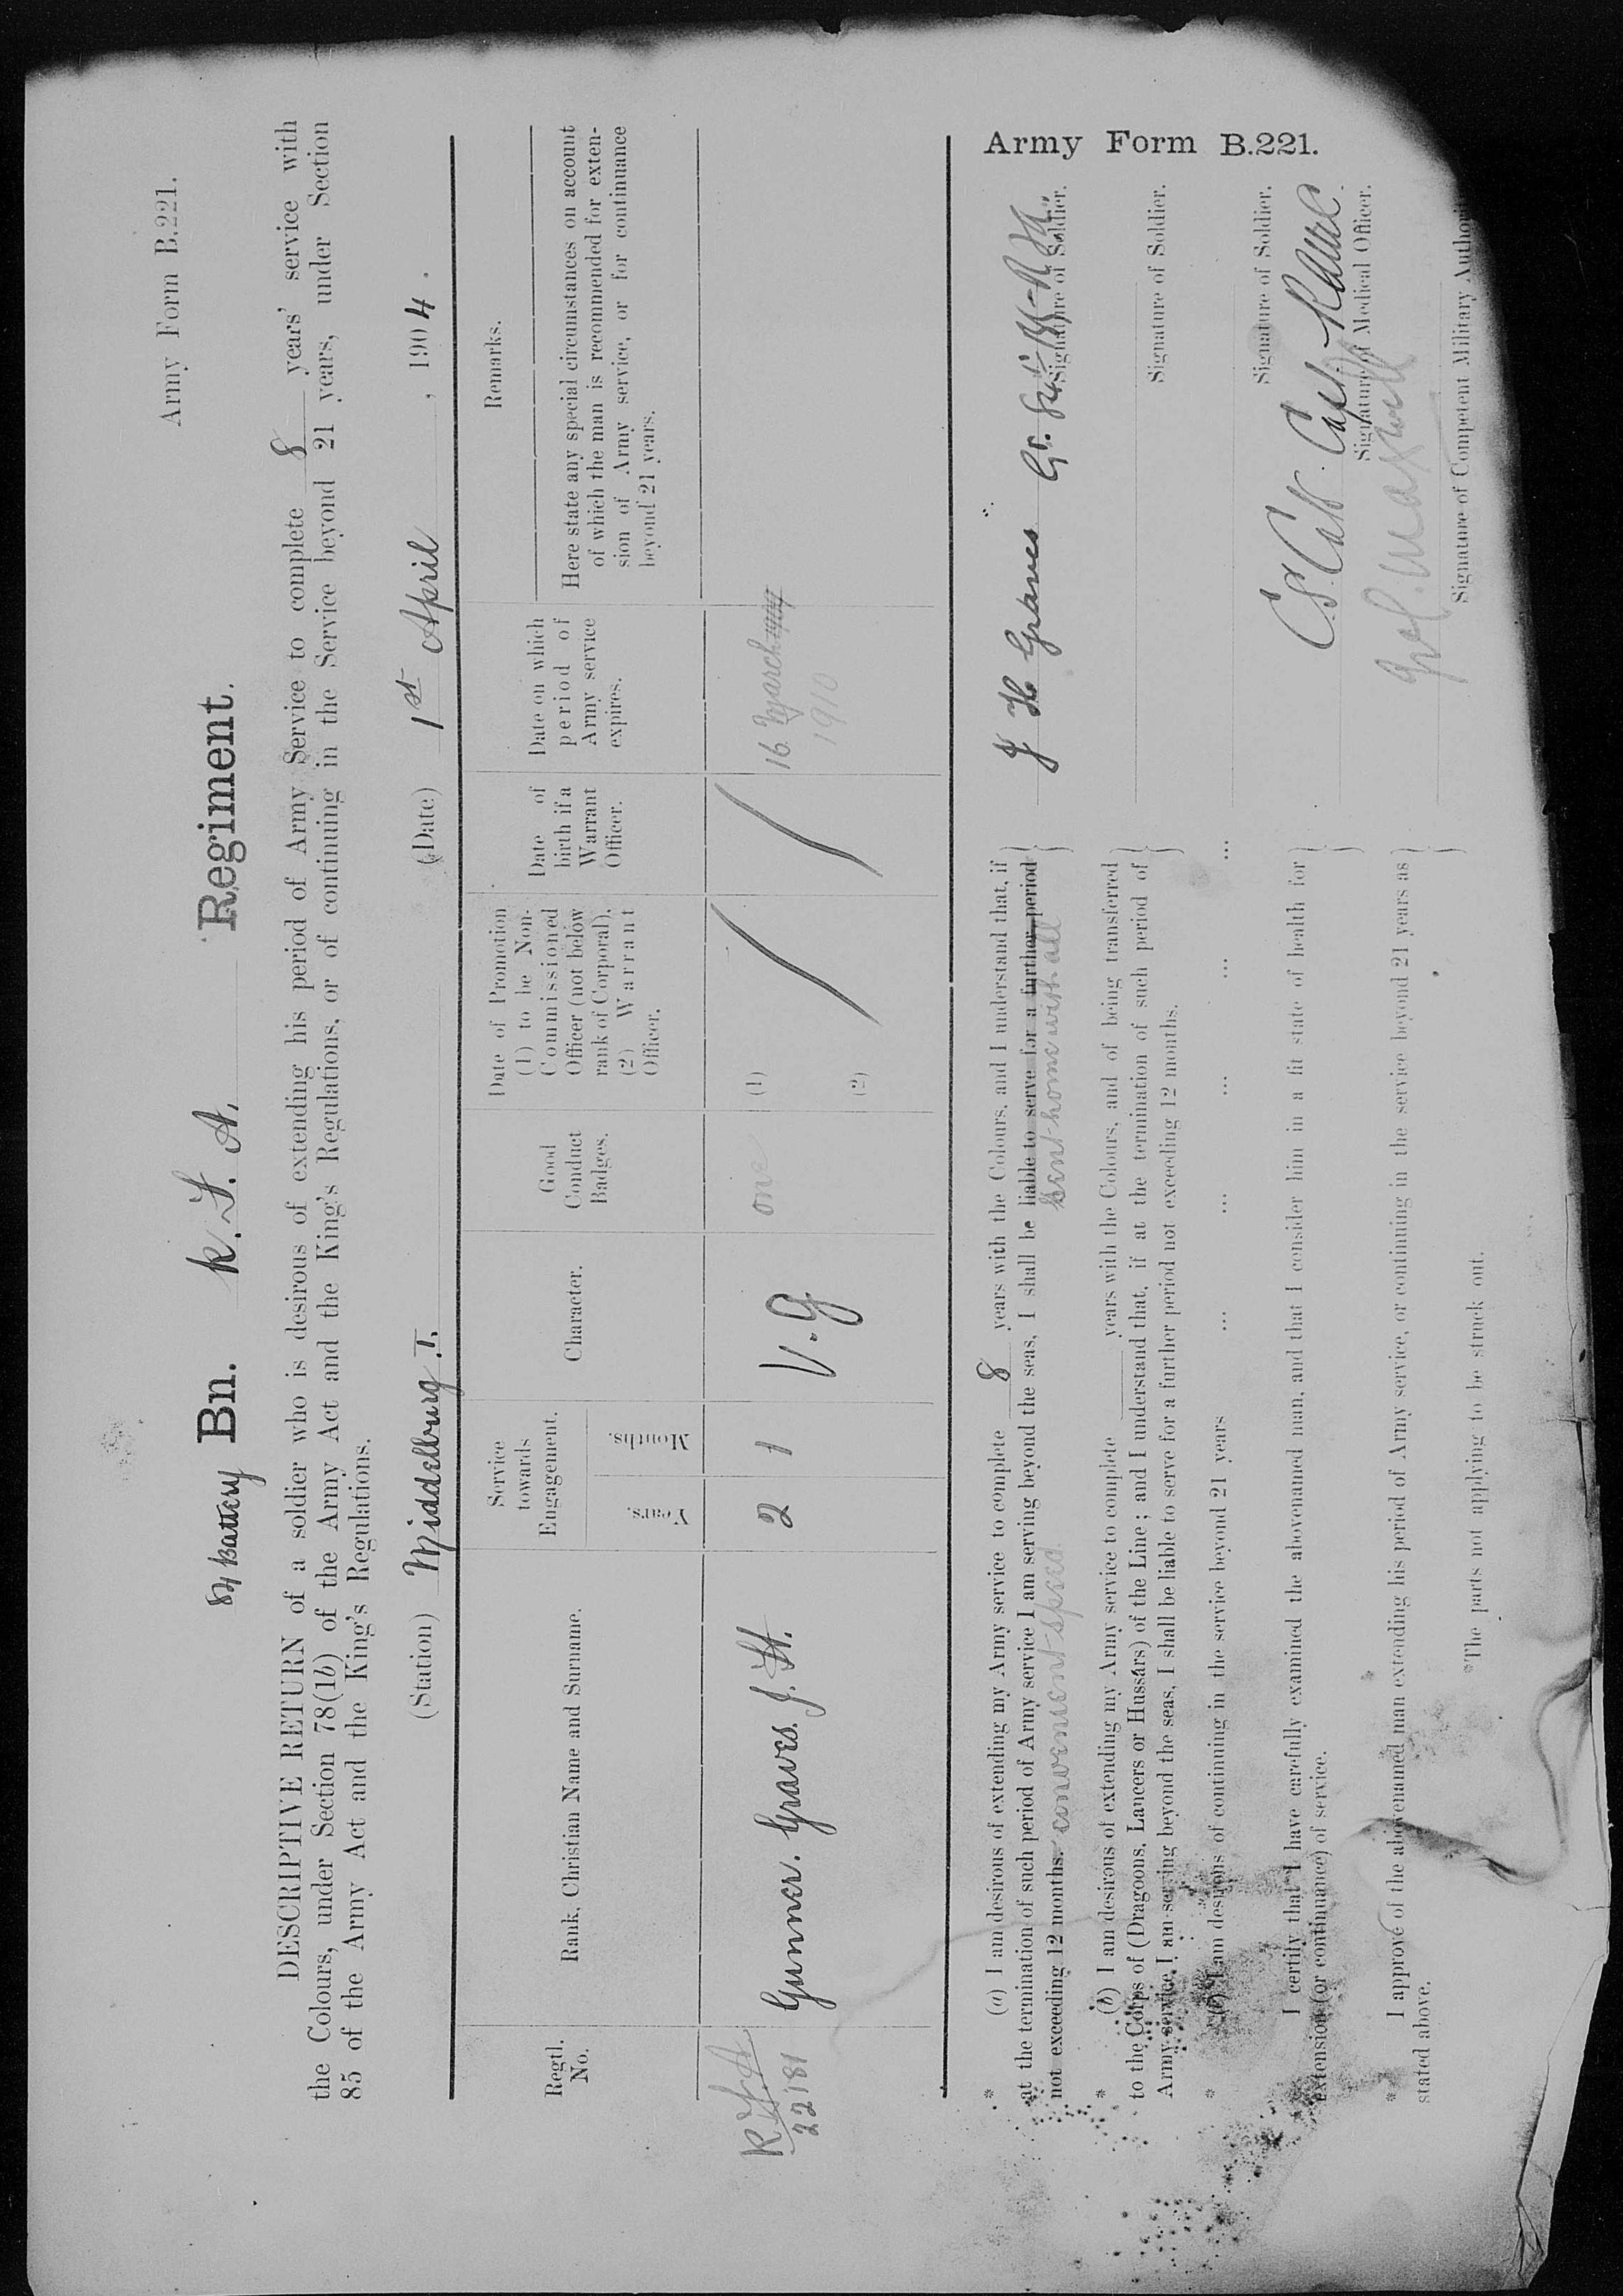 Army Form B.221.
84 Battery Bn. R. F. A. Regiment.
DESCRIPTIVE RETURN of a soldier who is desirous of extending his period of Army Service to complete 8 years' service with
the Colours, under Section 78(1b) of the Army Act and the King's Regulations, or of continuing in the Service beyond 21 years, under Section
85 of the Army Act and the King's Regulations.
(Station) Middelburg. T. (Date) 1st April , 1904.
Regtl. No.
Rank, Christian Name and Surname.
Service towards Engagement.
Years.
Months.
Character.
Good Conduct Badges.
Date of Promotion
(1) to be Non-
Commissioned
Officer (not below
rank of Corporal).
(2) Warrant
Officer.
Date of
birth if a
Warrant
Officer.
Date on which
period of
Army service
expires.
Remarks.
Here state any special circumstances on account
of which the man is recommended for exten-
sion of Army service, or for continuance
beyond 21 years.
R.F.A
22181
Gunner. Graves. J. H.
2
1
V. G
one
(1)
(2)
16 March
1910
* (a) I am desirous of extending my Army service to complete 8 years with the Colours, and I understand that, if
at the termination of such period of Army service I am serving beyond the seas, I shall be liable to serve for a further period
sent home with all
not exceeding 12 months. convenient speed.
J H Graves Gr.
Signature of Soldier.
* (b) I am desirous of extending my Army service to complete years with the Colours, and of being transferred
to the Corps of (Dragoons, Lancers or Hussars) of the Line; and I understand that, if at the termination of such period of
Army service I am serving beyond the seas, I shall be liable to serve for a further period not exceeding 12 months.
Signature of Soldier.
* I am desirous of continuing in the service beyond 21 years ... ... ... ... ...
Signature of Soldier.
I certify that I have carefully examined the abovenamed man, and that I consider him in a fit state of health for
extension (or continuance) of service.
Capt RAMC
Signature of Medical Officer.
* I approve of the abovenamed man extending his period of Army service, or continuing in the service beyond 21 years as
stated above.
Maxwell
Signature of Competent Military Authority
*The parts not applying to be struck out.
Army Form B.221.